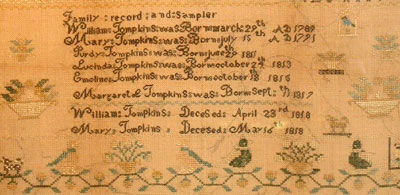 Family : record : and : Sampler
William : Tompkins : was : Born march 29th AD 1789
Mary : Tompkins : was : Born july 15th AD 1791
Purdy : Tompkins : was : Born june 29th 1811
Lucinda Tompkins : was : Born october 24th 1813
Emeline Tompkins : was : Born october 18 1816
Margaret Tompkins : was : Born Sept : 17 1817
William : Tompkins : DeceSed : April 23rd 1818
Mary : Tompkins : DeceSed : May 16th 1818